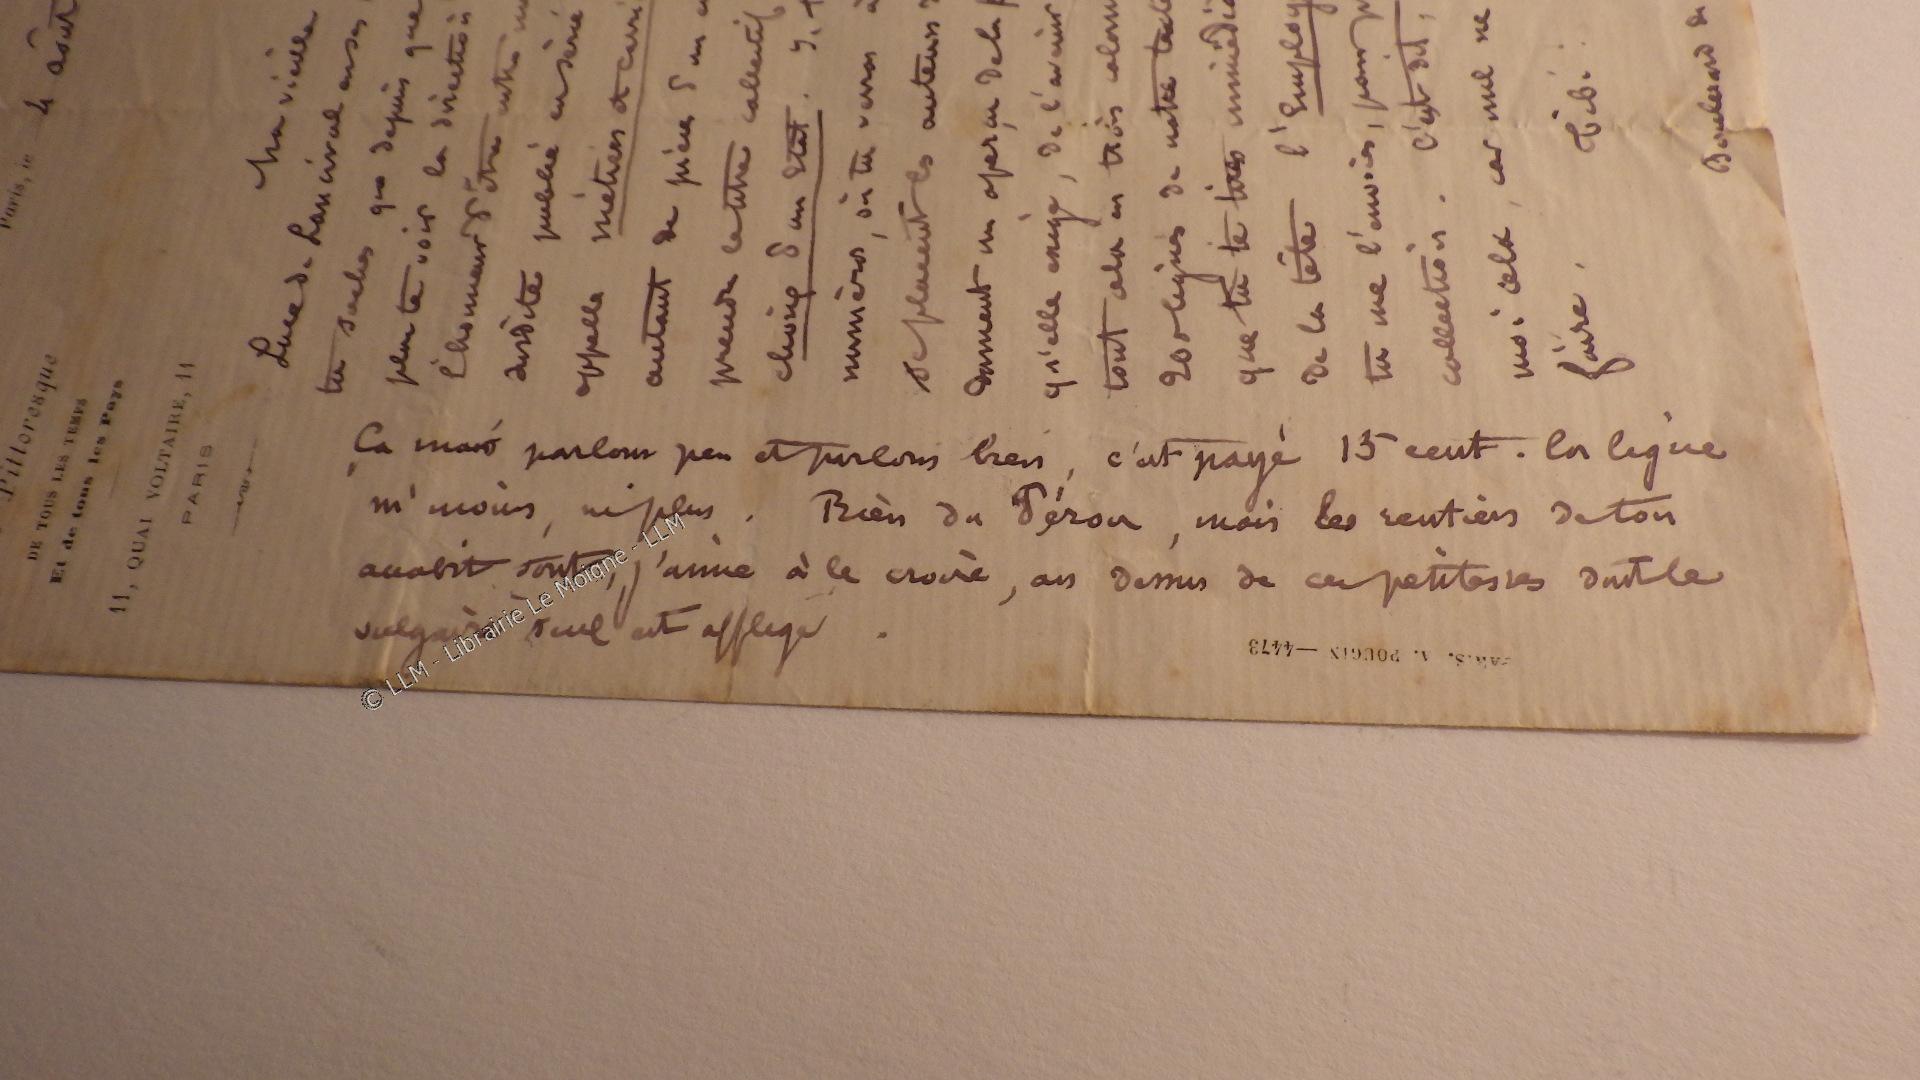 Pittoresque
DE TOUS LES TEMPS
Et de tous les Pays
11, QUAI VOLTAIRE, 11
PARIS
Paris, le 4 août
Ma vieille
Luce de Lancival
tu saches que depuis que
plus te voir la direction
l'honneur d'être
dite publié
appelle Métiers et
autant de
prends lettre collectif
choisis d'un état.
numéros, où tu verras
les auteurs
donnent un aperçu de la
qu'elle exige, de l'avenir
tout cela en trois colonn
200 lignes de notre
que tu te tires immédia
de la tête l'Employ
tu me l'envoies, pour
collection. C'est dit,
moi cela, car nul ne
faire. Tibi!
Boulevard de
Ça mais parlons peu et parlons bien, c'est payé 15 cent. la ligne
ni moins, ni plus. Rien du Pérou, mais les rentiers de ton
acabit sont, j'aime à le croire, au dessus de ces petitesses dont le
vulgaire seul est affligé.
PARIS. A. POUGIN — 4473
© LLM - Librairie Le Moigne - LLM